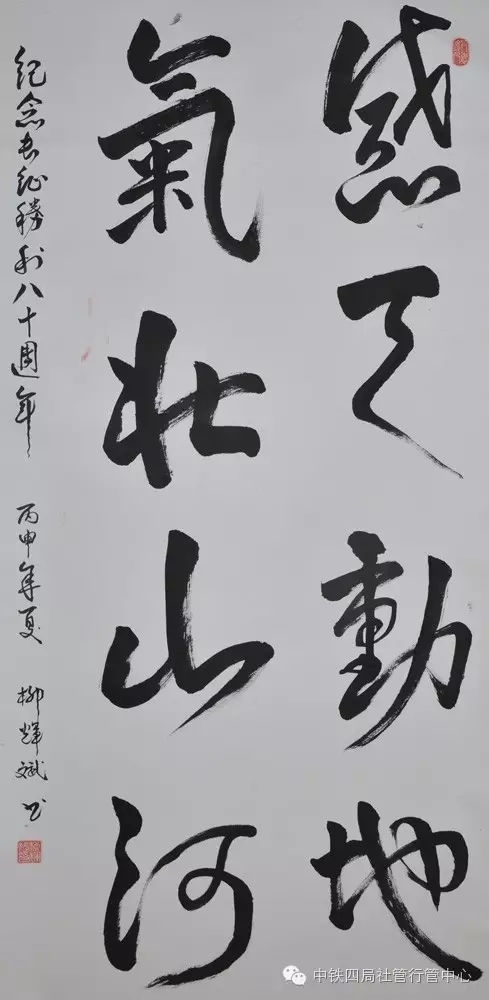 感天動地
氣壯山河
紀念長征勝利八十週年
丙申年夏 柳輝斌書
中铁四局社管行管中心